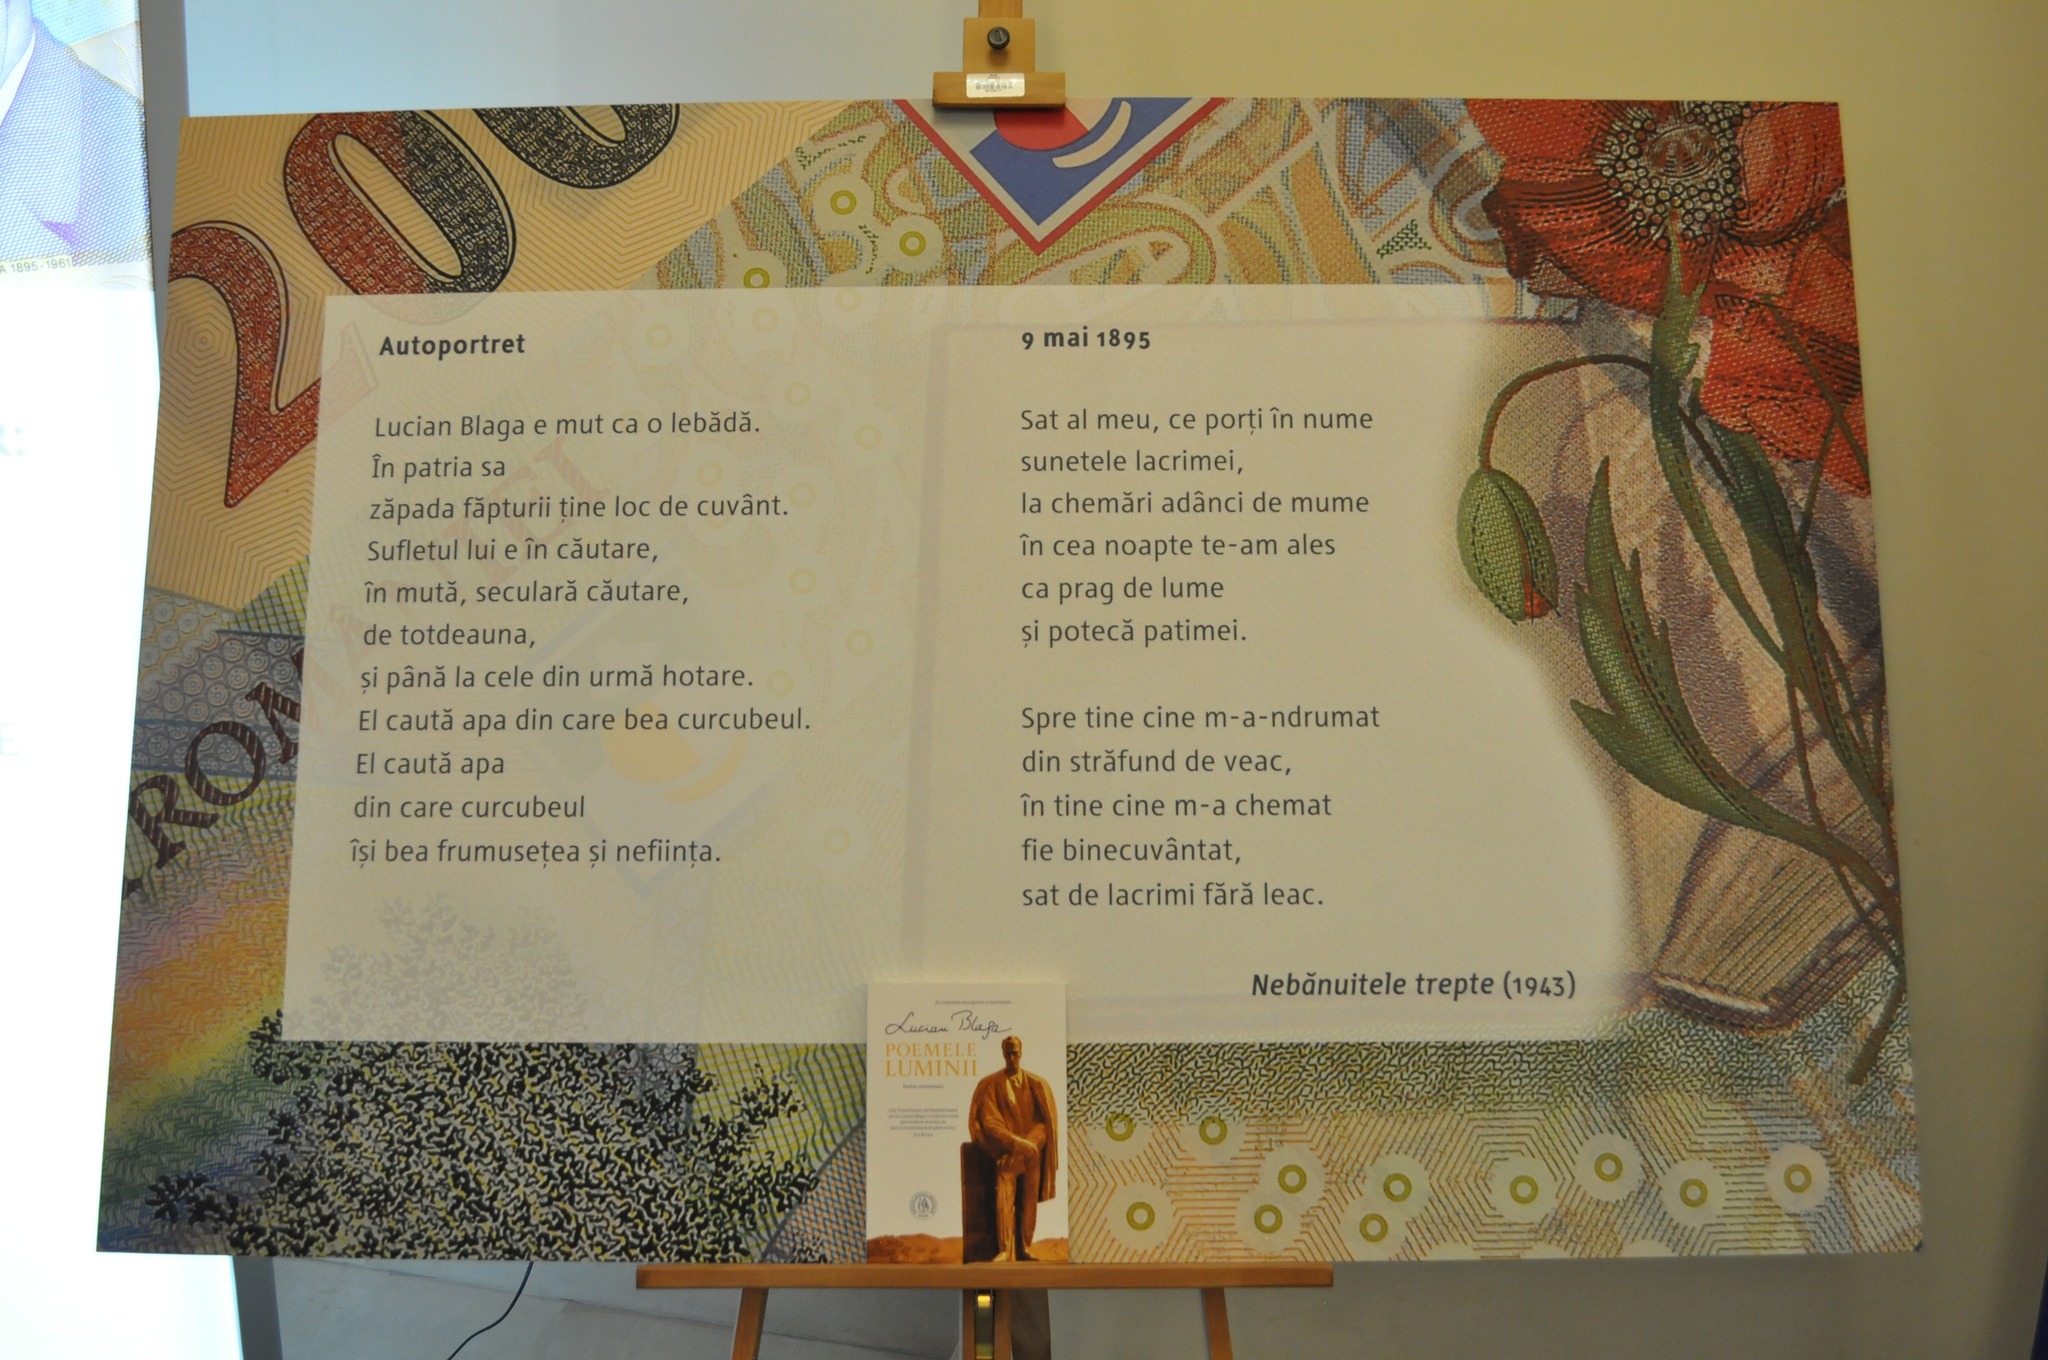 200
LEI
ROMÂNIA
A 1895-1961
Autoportret
Lucian Blaga e mut ca o lebădă.
În patria sa
zăpada făpturii ține loc de cuvânt.
Sufletul lui e în căutare,
în mută, seculară căutare,
de totdeauna,
și până la cele din urmă hotare.
El caută apa din care bea curcubeul.
El caută apa
din care curcubeul
își bea frumusețea și neființa.
9 mai 1895
Sat al meu, ce porți în nume
sunetele lacrimei,
la chemări adânci de mume
în cea noapte te-am ales
ca prag de lume
și potecă patimei.
Spre tine cine m-a-ndrumat
din străfund de veac,
în tine cine m-a chemat
fie binecuvântat,
sat de lacrimi fără leac.
Nebănuitele trepte (1943)
Lucian Blaga
POEMELE
LUMINII